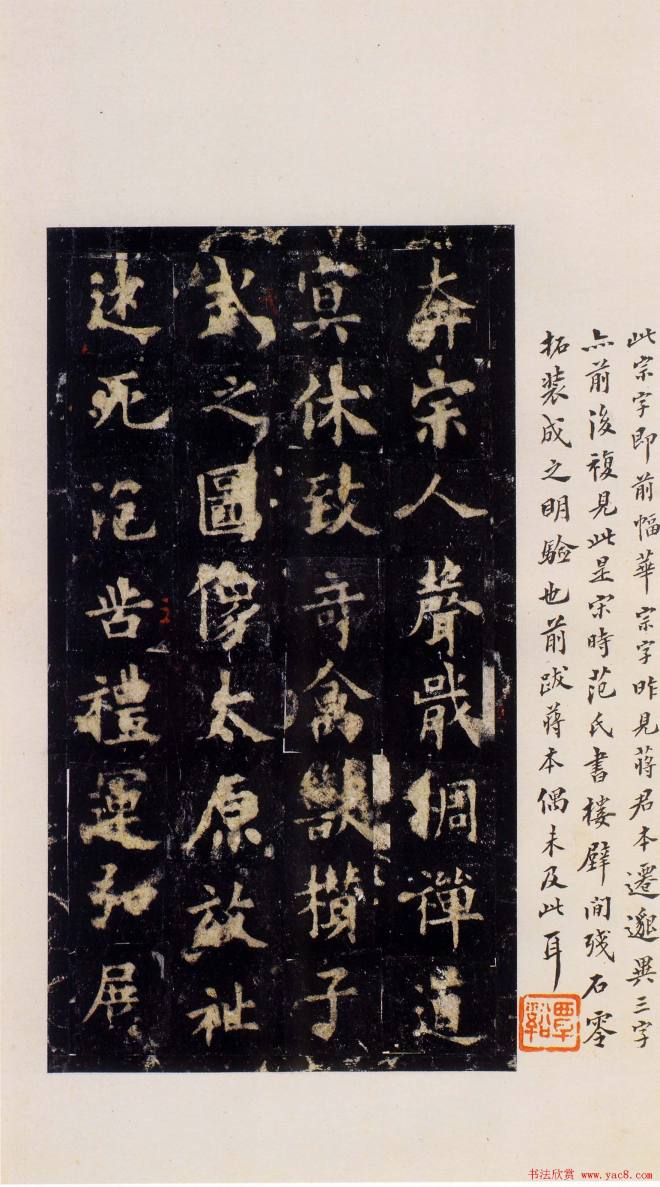 此宗字即前幅華宗字昨見蔣君本遷邈異三字
亦前後複見此是宋時范氏書樓壁間殘石零
拓裝成之明驗也前跋蔣本偶未及此耳
覃谿
奔宗人聲戢稠禪道
冥休致奇禽獸攢子
式之圖像太原放祉
迷死禮運弘展
书法欣赏 www.yac8.com